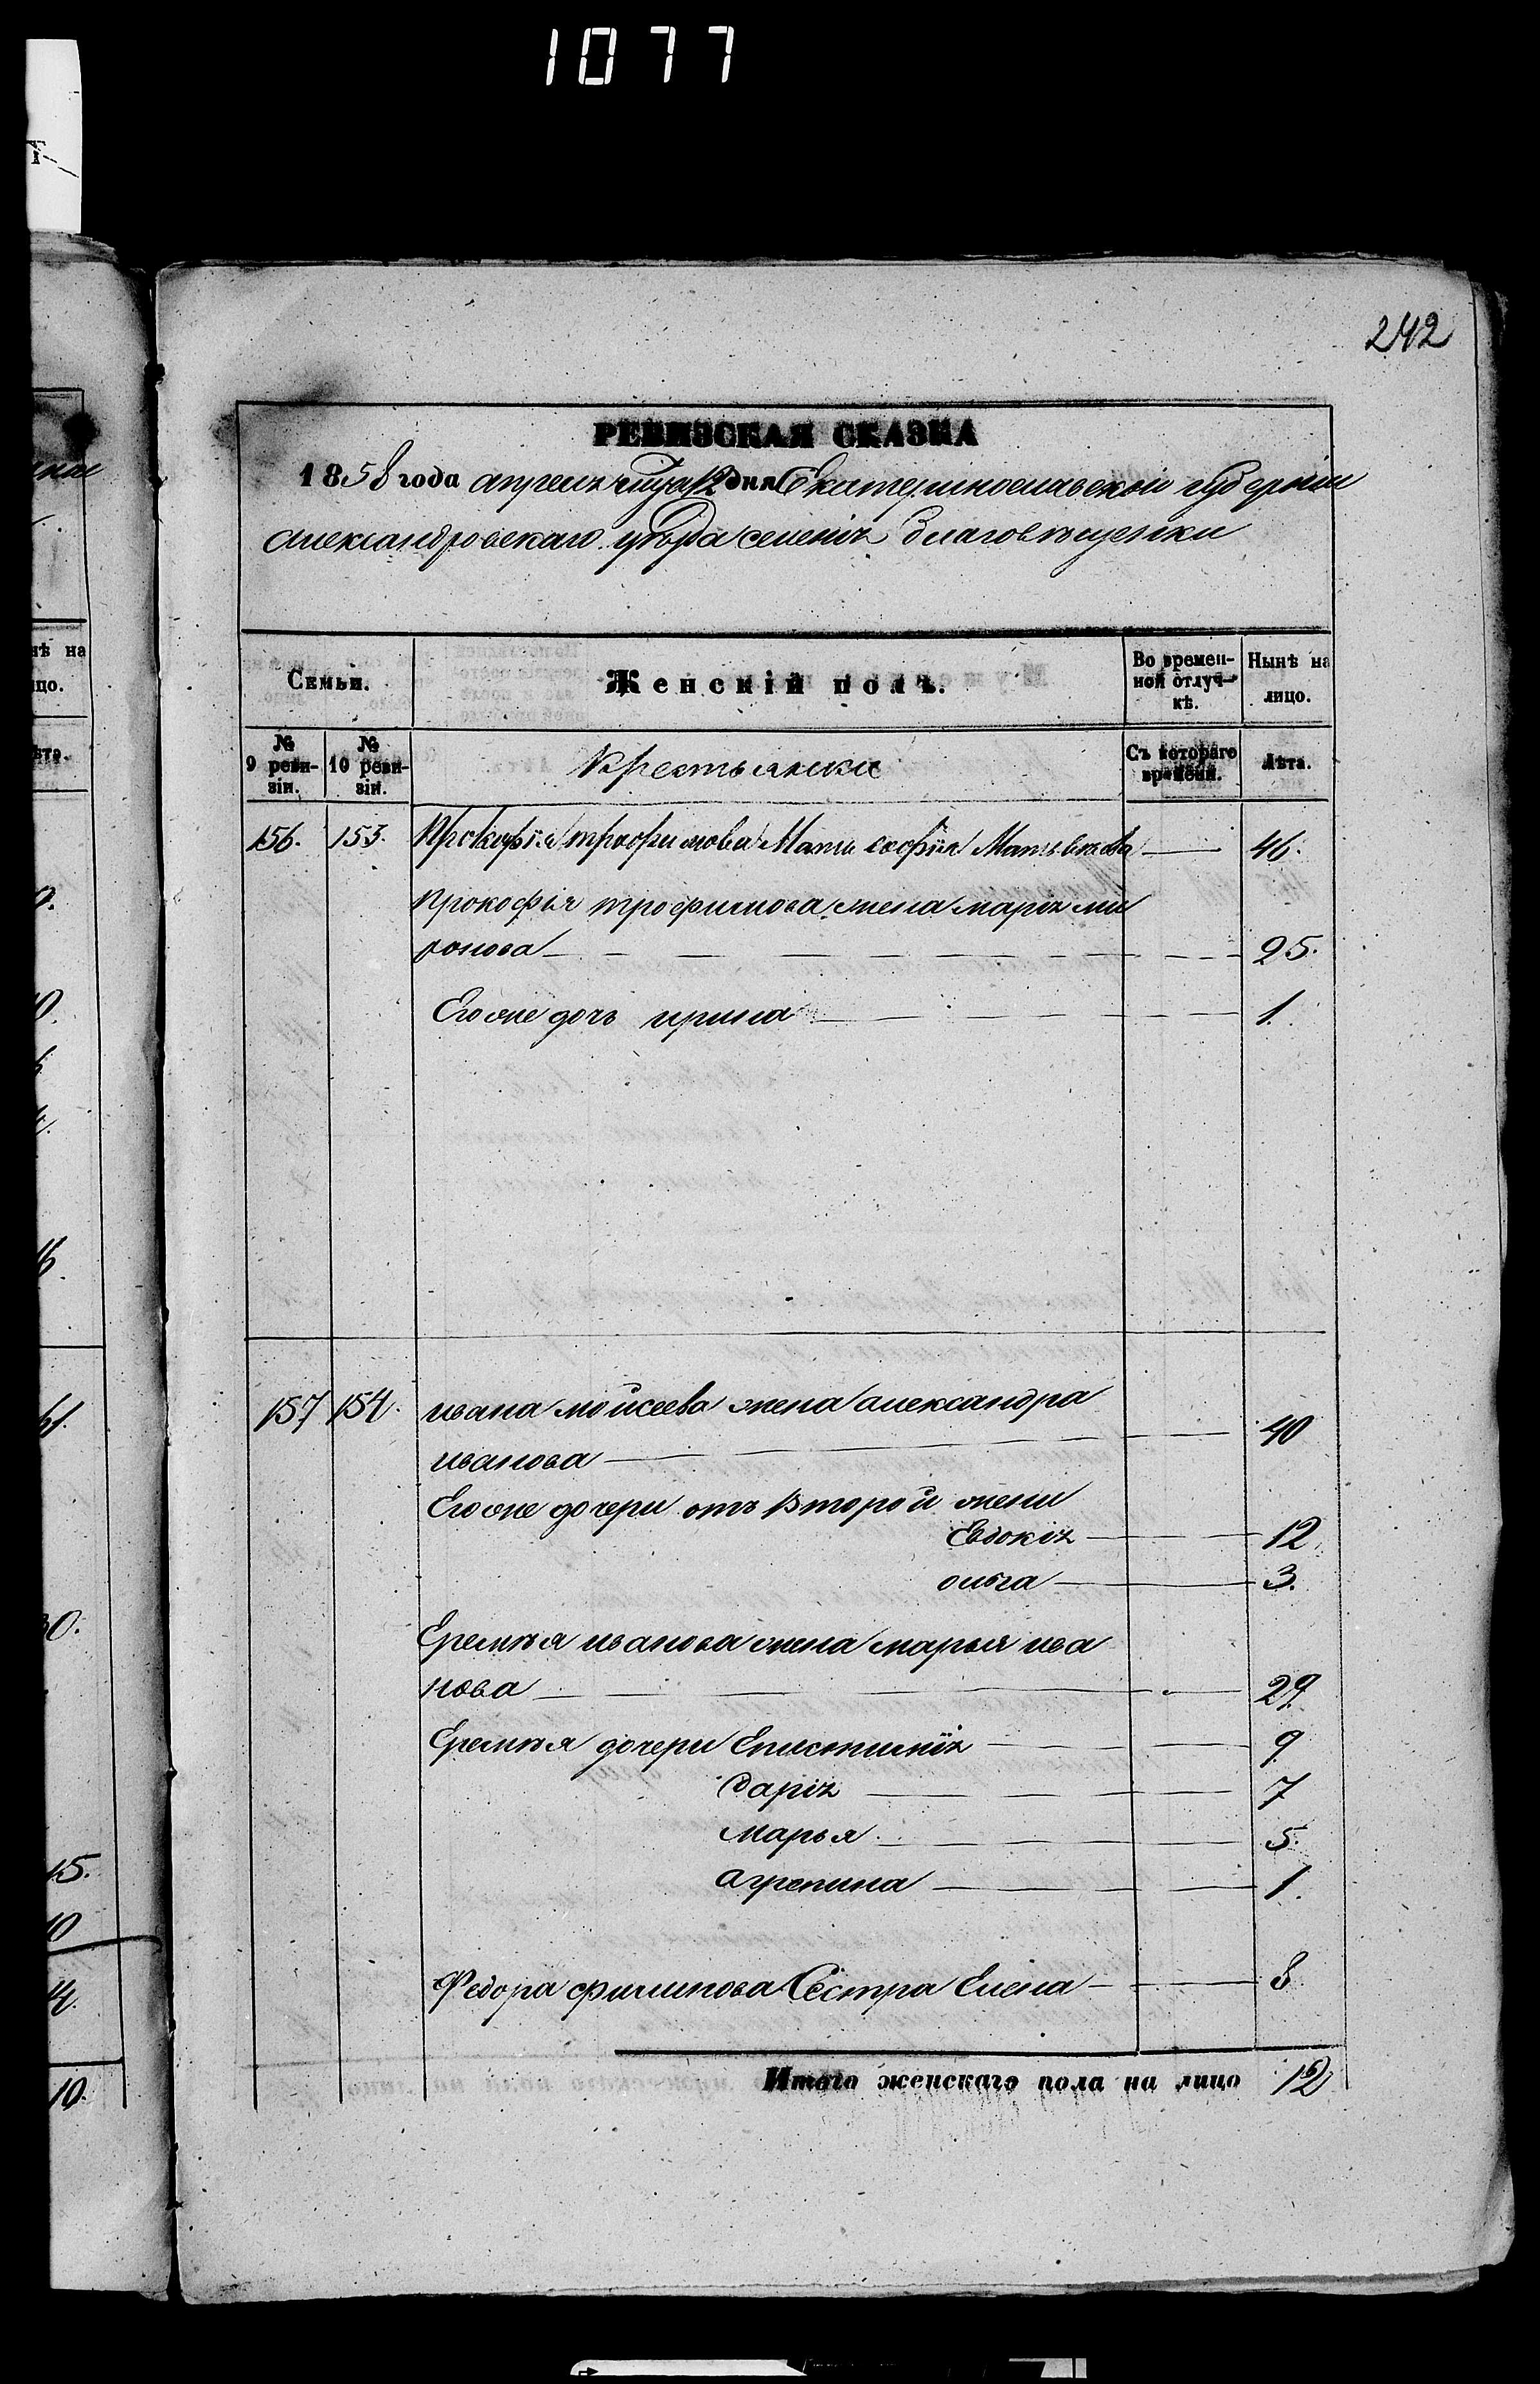 1077
242
РЕВИЗСКАЯ СКАЗКА
1858 года апреля мца 12 дня Екатеринославской губернiи
александровскаго уѣзда селенiя благовѣщенки
Семьи.
Женскiй полъ.
Во времен-
ной отлуч-
кѣ.
Нынѣ на
лицо.
№
9 реви-
зiи.
№
10 реви-
зiи.
Крестьянки
Съ котораго
времени.
Лѣта.
156. 153. Прокофiя трофимова Мать софiя Матвѣева — 46.
Прокофiя трофимова жена марiя ми
ронова — 25.
Егоже дочь ирина — 1.
157 154. ивана мойсеева жена александра
иванова — 40
Егоже дочери отъ Второй жени
Евдокiя — 12
ольга — 3.
Еремѣя иванова жена марья ива
нова — 29
Еремѣя дочери Епистимiя — 9
дарiя — 7
Марья — 5.
агрепина — 1.
Федора филипова Сестра Елена — 8
Итого женскаго пола на лицо 12
нѣ на
цо.
ѣта.
0.
10.
16.
30.
15.
10
10.